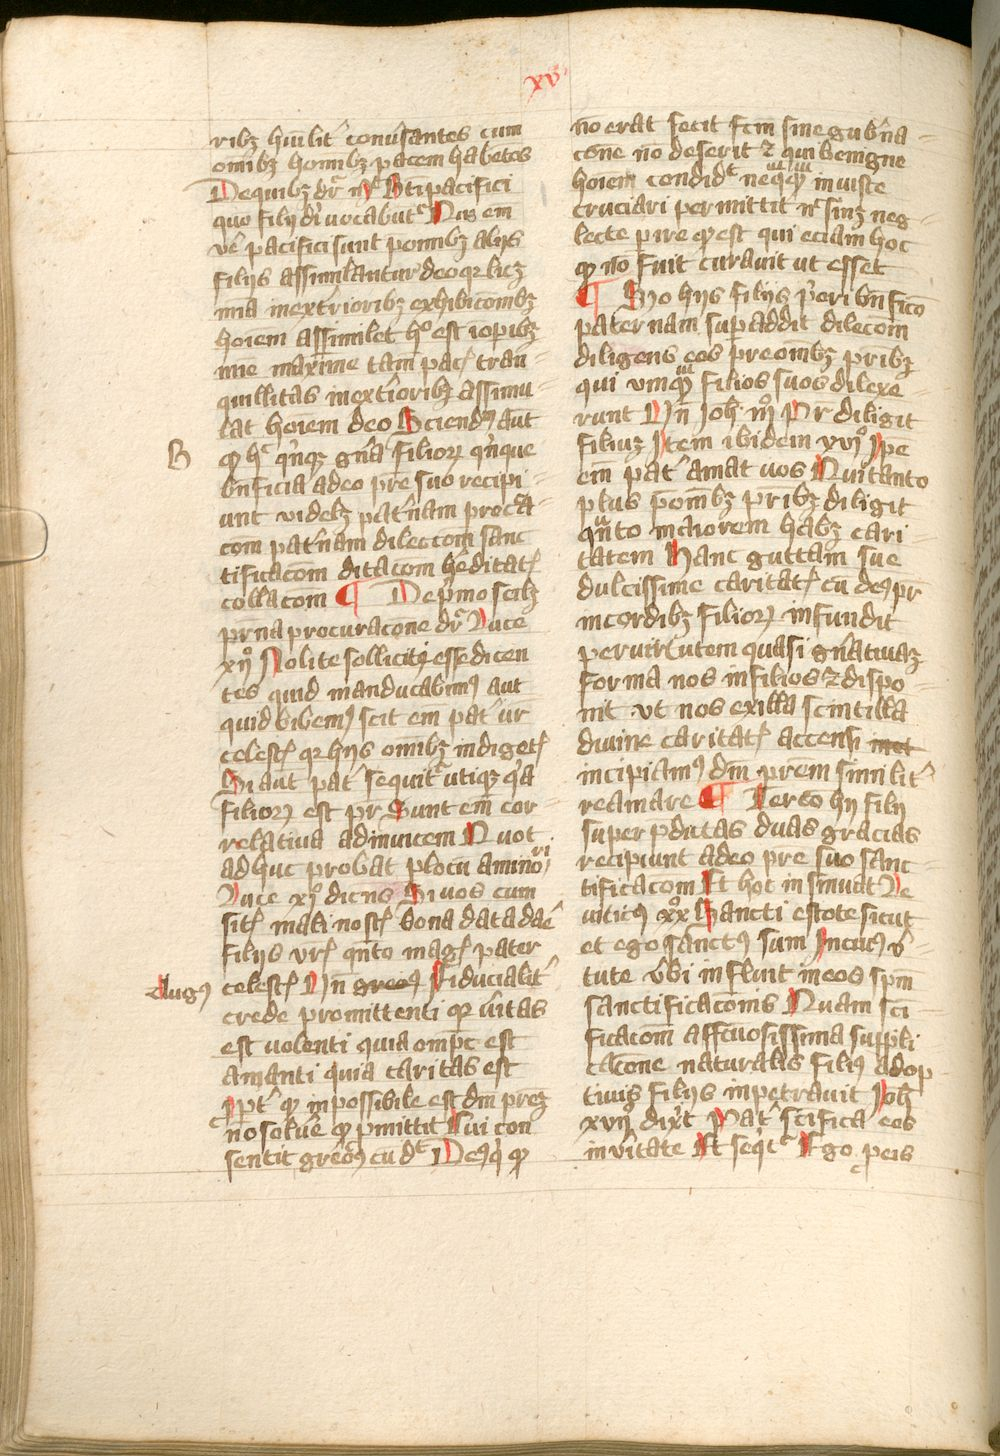 xv
ribꝫ hūilit᷑ conuersantes cum
omibꝫ hominibꝫ pacem habētes
De quibꝫ dr̄ Bt̄i pacifici
quō filij di uocabūt᷑ em̄
ve pacifici sunt p omibꝫ alijs
filijs assimilantur deo qꝛ licꝫ
in extrioribꝫ exhibicōibꝫ
hoīem assimilet hͦ est
mīe maxime tam pacꝭ tran
quillitas in extͥoribꝫ assimu
lat hoīem deo Sciendū aut
B
ꝙ hͥ qͥnqꝫ gn̄a filioꝝ qͥnque
bn̄ficia a deo pr̄e suo recipi
unt videlꝫ pat᷑nam procᷓa
com pat᷑nam dileccom sanc
tificacōm ditacōm h᷑editatꝭ
collacom ¶ De pͥmo scilꝫ
pr̄na procuracone dr̄ Luce
xijͦ Nolite solliciti esse dicen
tes quid manducabimꝰ aut
quid bibemꝰ scit em̄ pat᷑ ur̄
celestꝭ qꝛ hijs omībꝫ indigetꝭ
Si aut pat᷑ sequit᷑ utiqꝫ qͥa
filioꝝ est pr̄ Sunt em̄ cor
relatiua adinuicem Quot
adhuc probat p locū a minori
Luce xjͦ dicēns Si uos cum
sitꝭ mali nostꝭ bona data daē
filijs vrꝭ qn̄to magꝭ pater
Augꝰ
celestꝭ Vn̄ gregꝰ Fiducialit᷑
crede promittenti qꝛ ū͛itas
est uolenti quia omp̄c est
amanti quia caritas est
ppt᷑ ꝙ inpossibile est dm̄ prēꝫ
nō solūe ꝙ pmittit Cui con
sentit gregoriꝰ cū dͭ Deꝰ qͥ ꝙ
nō erat fecit fcm̄ sine gub͛na
cōne nō deserit ⁊ qui benigne
hoīem condidͭ neqͣqͣ iniuste
cruciari permittit nͨ sinꝫ neg
lecte pire ꝙ est qui eciam hoc
ꝙ nō fuit curauit ut esset
¶ Sͦo hijs filijs pͥeri bn̄ficō
paternam supaddit dilecōm
diligens eos pre ombꝫ pribꝫ
qui vmqͣꝫ filios suos dilexe
runt Vn̄ Joh̄ Pr̄ diligit
filiuꝫ Item ibidem xvjͦ Ipe
em̄ pat᷑ amat uos Qui tanto
plus p̄ ombꝫ pr̄ibꝫ diligit
qͣnto maiorem habꝫ cari
tatem Hanc guttam sue
dulcissime caritatꝭ cū deꝰ pr̄
in cordibꝫ filioꝝ infundit
per uirtutem quasi gn̄atiuaꝫ
format nos in filios ⁊ dispo
nit ut nos ex illa scintilla
diuine caritatꝭ accensi
incipiamꝰ dm̄ prēm similit᷑
reamare ¶ Tercō hij filij
super pdictas duas gracias
recipiunt a deo pre suo sanc
tificacōm Et hoc insinuat Le
uiticꝰ xxͦ Sancti estote sicut
et ego sanctꝰ sum In cuiꝰ v͛
tute v͛bi influit in eos spm̄
sanctificacōnis Quam sci
ficacōm affcuosissima suppli
cacōne naturalis filiꝰ adop
tiuis filijs inpetrauit Joh̄
xvijͦ dixͥt Pat᷑ scifica eos
in ū͛itate Et seqͥt᷑ Ego p eis